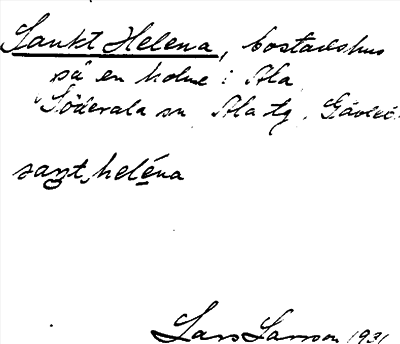 Sankt Helena, bostadshus
på en holme i Ala
Söderala sn Ala tg. Gävleb.
saŋt, heléna
Lars Larsson 1931